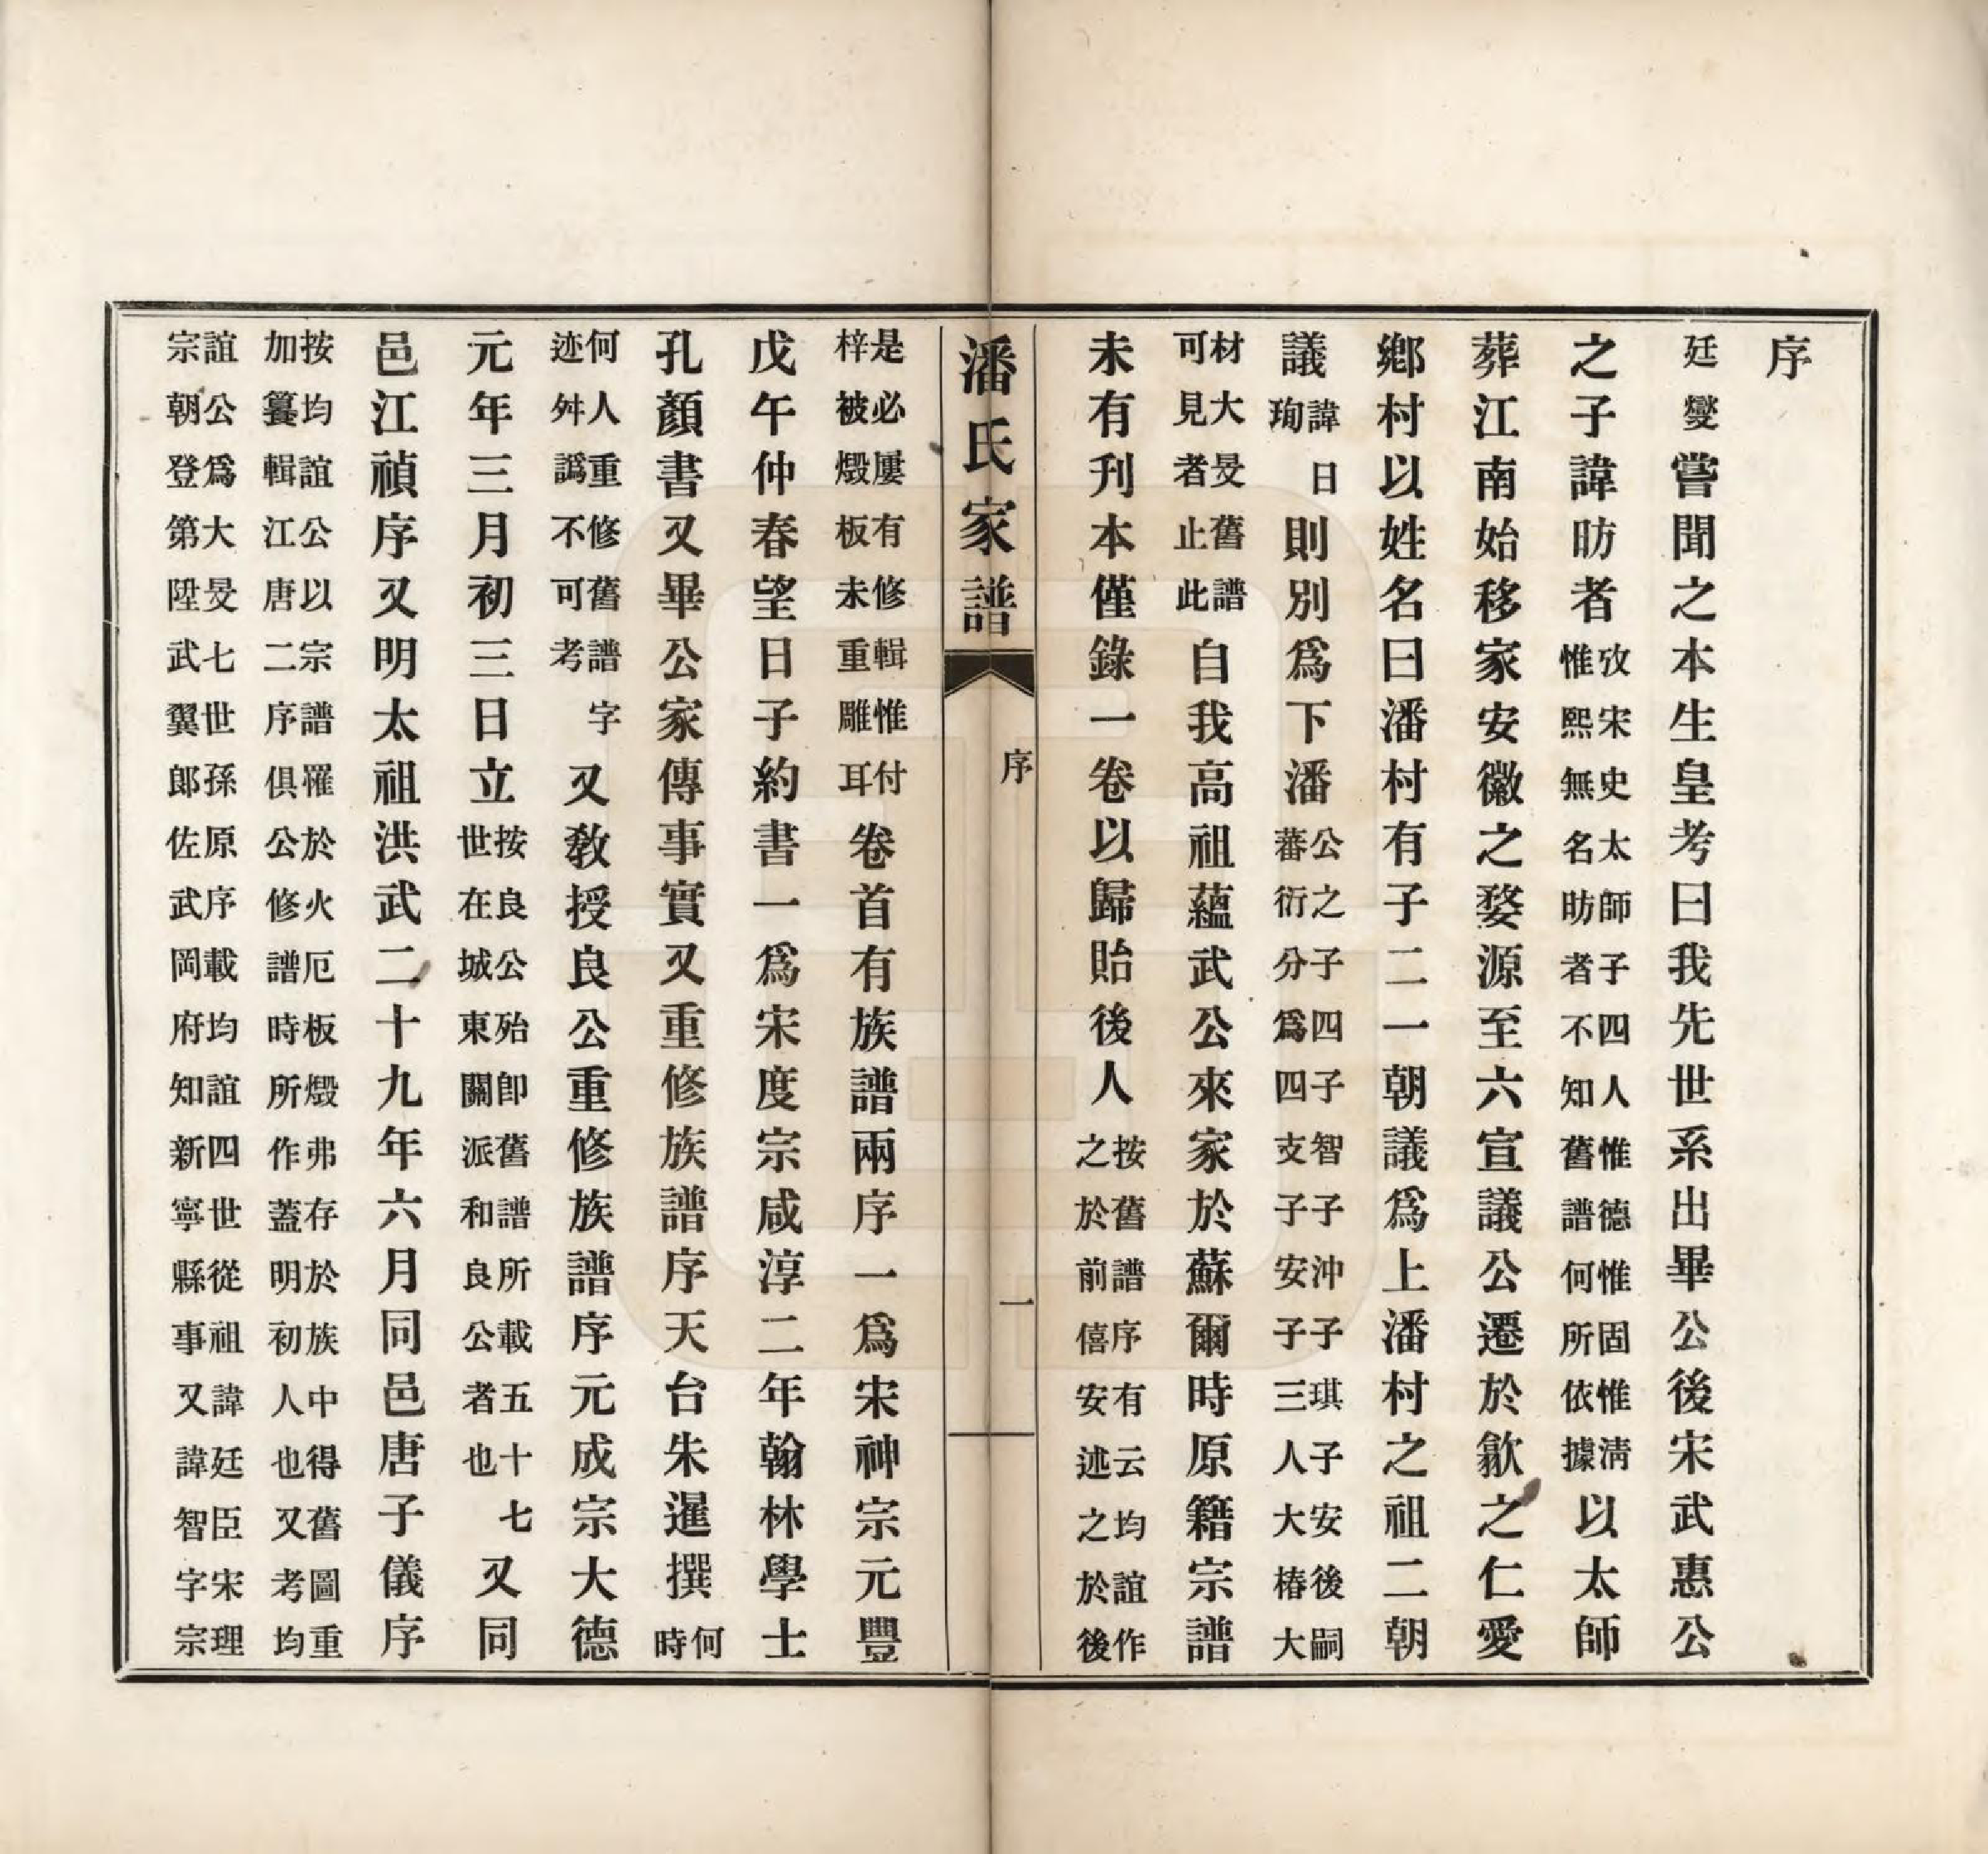 序
廷燮嘗聞之本生皇考曰我先世系出畢公後宋武惠公
之子諱昉者攷宋史太師子四人惟德惟固惟清惟熙無名昉者不知舊譜何所依據以太師
葬江南始移家安徽之婺源至六宣議公遷於歙之仁愛
鄉村以姓名曰潘村有子二一朝議爲上潘村之祖二朝
議諱珣曰則別爲下潘公之子四子智子沖子琪子安後嗣蕃衍分爲四支子子安子子三人大椿大
材大旻舊譜可見者止此自我高祖蘊武公來家於蘇爾時原籍宗譜
未有刊本僅錄一卷以歸貽後人按舊譜序有云均誼作之於前僖安述之於後
潘氏家譜 序 一
是必屢有修輯惟付梓被燬板未重雕耳卷首有族譜兩序一爲宋神宗元豐
戊午仲春望日子約書一爲宋度宗咸淳二年翰林學士
孔顏書又畢公家傳事實又重修族譜序天台朱暹撰何時
何人重修舊譜字迹舛譌不可考又教授良公重修族譜序元成宗大德
元年三月初三日立按良公殆卽舊譜所載五十七世在城東關派和良公者也又同
邑江禎序又明太祖洪武二十九年六月同邑唐子儀序
按均誼公以宗譜罹於火厄板燬弗存於族中得舊圖重加纂輯江唐二序俱公修譜時所作蓋明初人也又考均
誼公爲大旻七世孫原序載均誼四世從祖諱廷臣宋理宗朝登第陞武翼郎佐武岡府知新寧縣事又諱智字宗